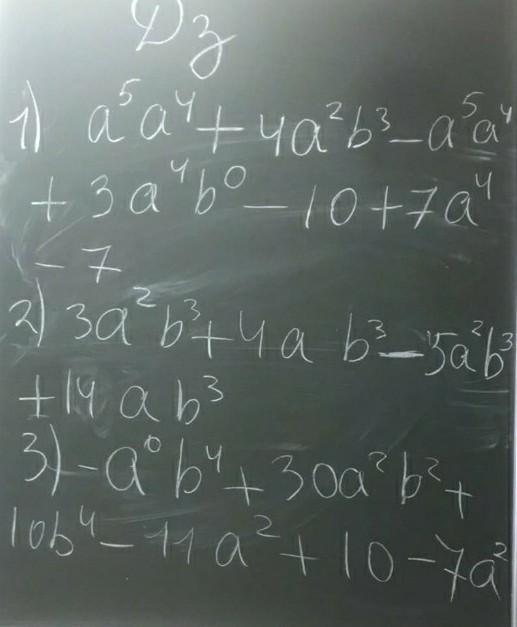 Дз
1) a⁵a⁴ + 4a²b³ - a⁵a⁴
+ 3a⁴b⁰ - 10 + 7a⁴
- 7
2) 3a²b³ + 4ab³ - 5a²b³
+ 14ab³
3) - a⁰b⁴ + 30a²b² +
10b⁴ - 11a² + 10 - 7a²